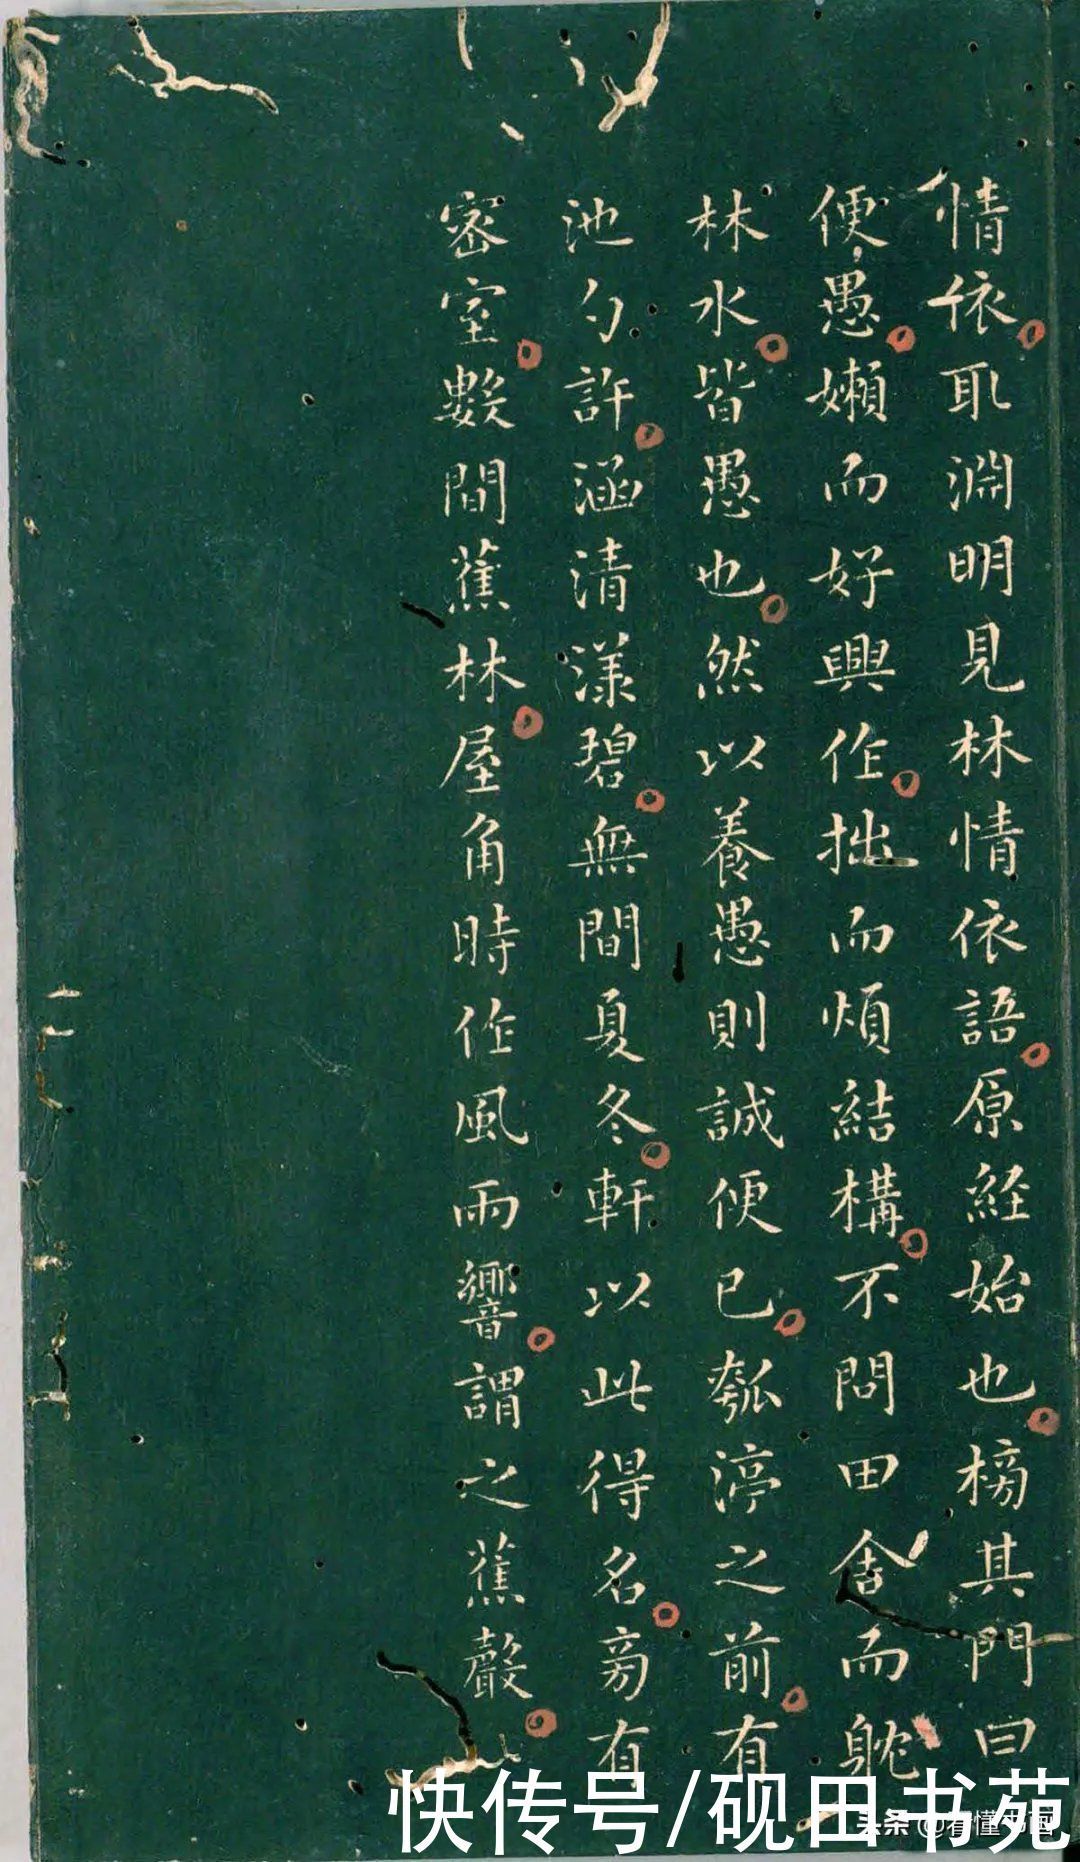 情依耴淵明見林情依依語原経始也榜其門曰
便愚嬾而好興作拙而煩結構不問田舎而躭
林水皆愚也然以養愚愚則誠便已瓠渟之前有
池勺許涵清漾碧無間夏冬軒以此得名旁有
密室數間蕉林屋角時作風雨響謂之蕉聲
快传号/砚田书苑
头条@看懂书画